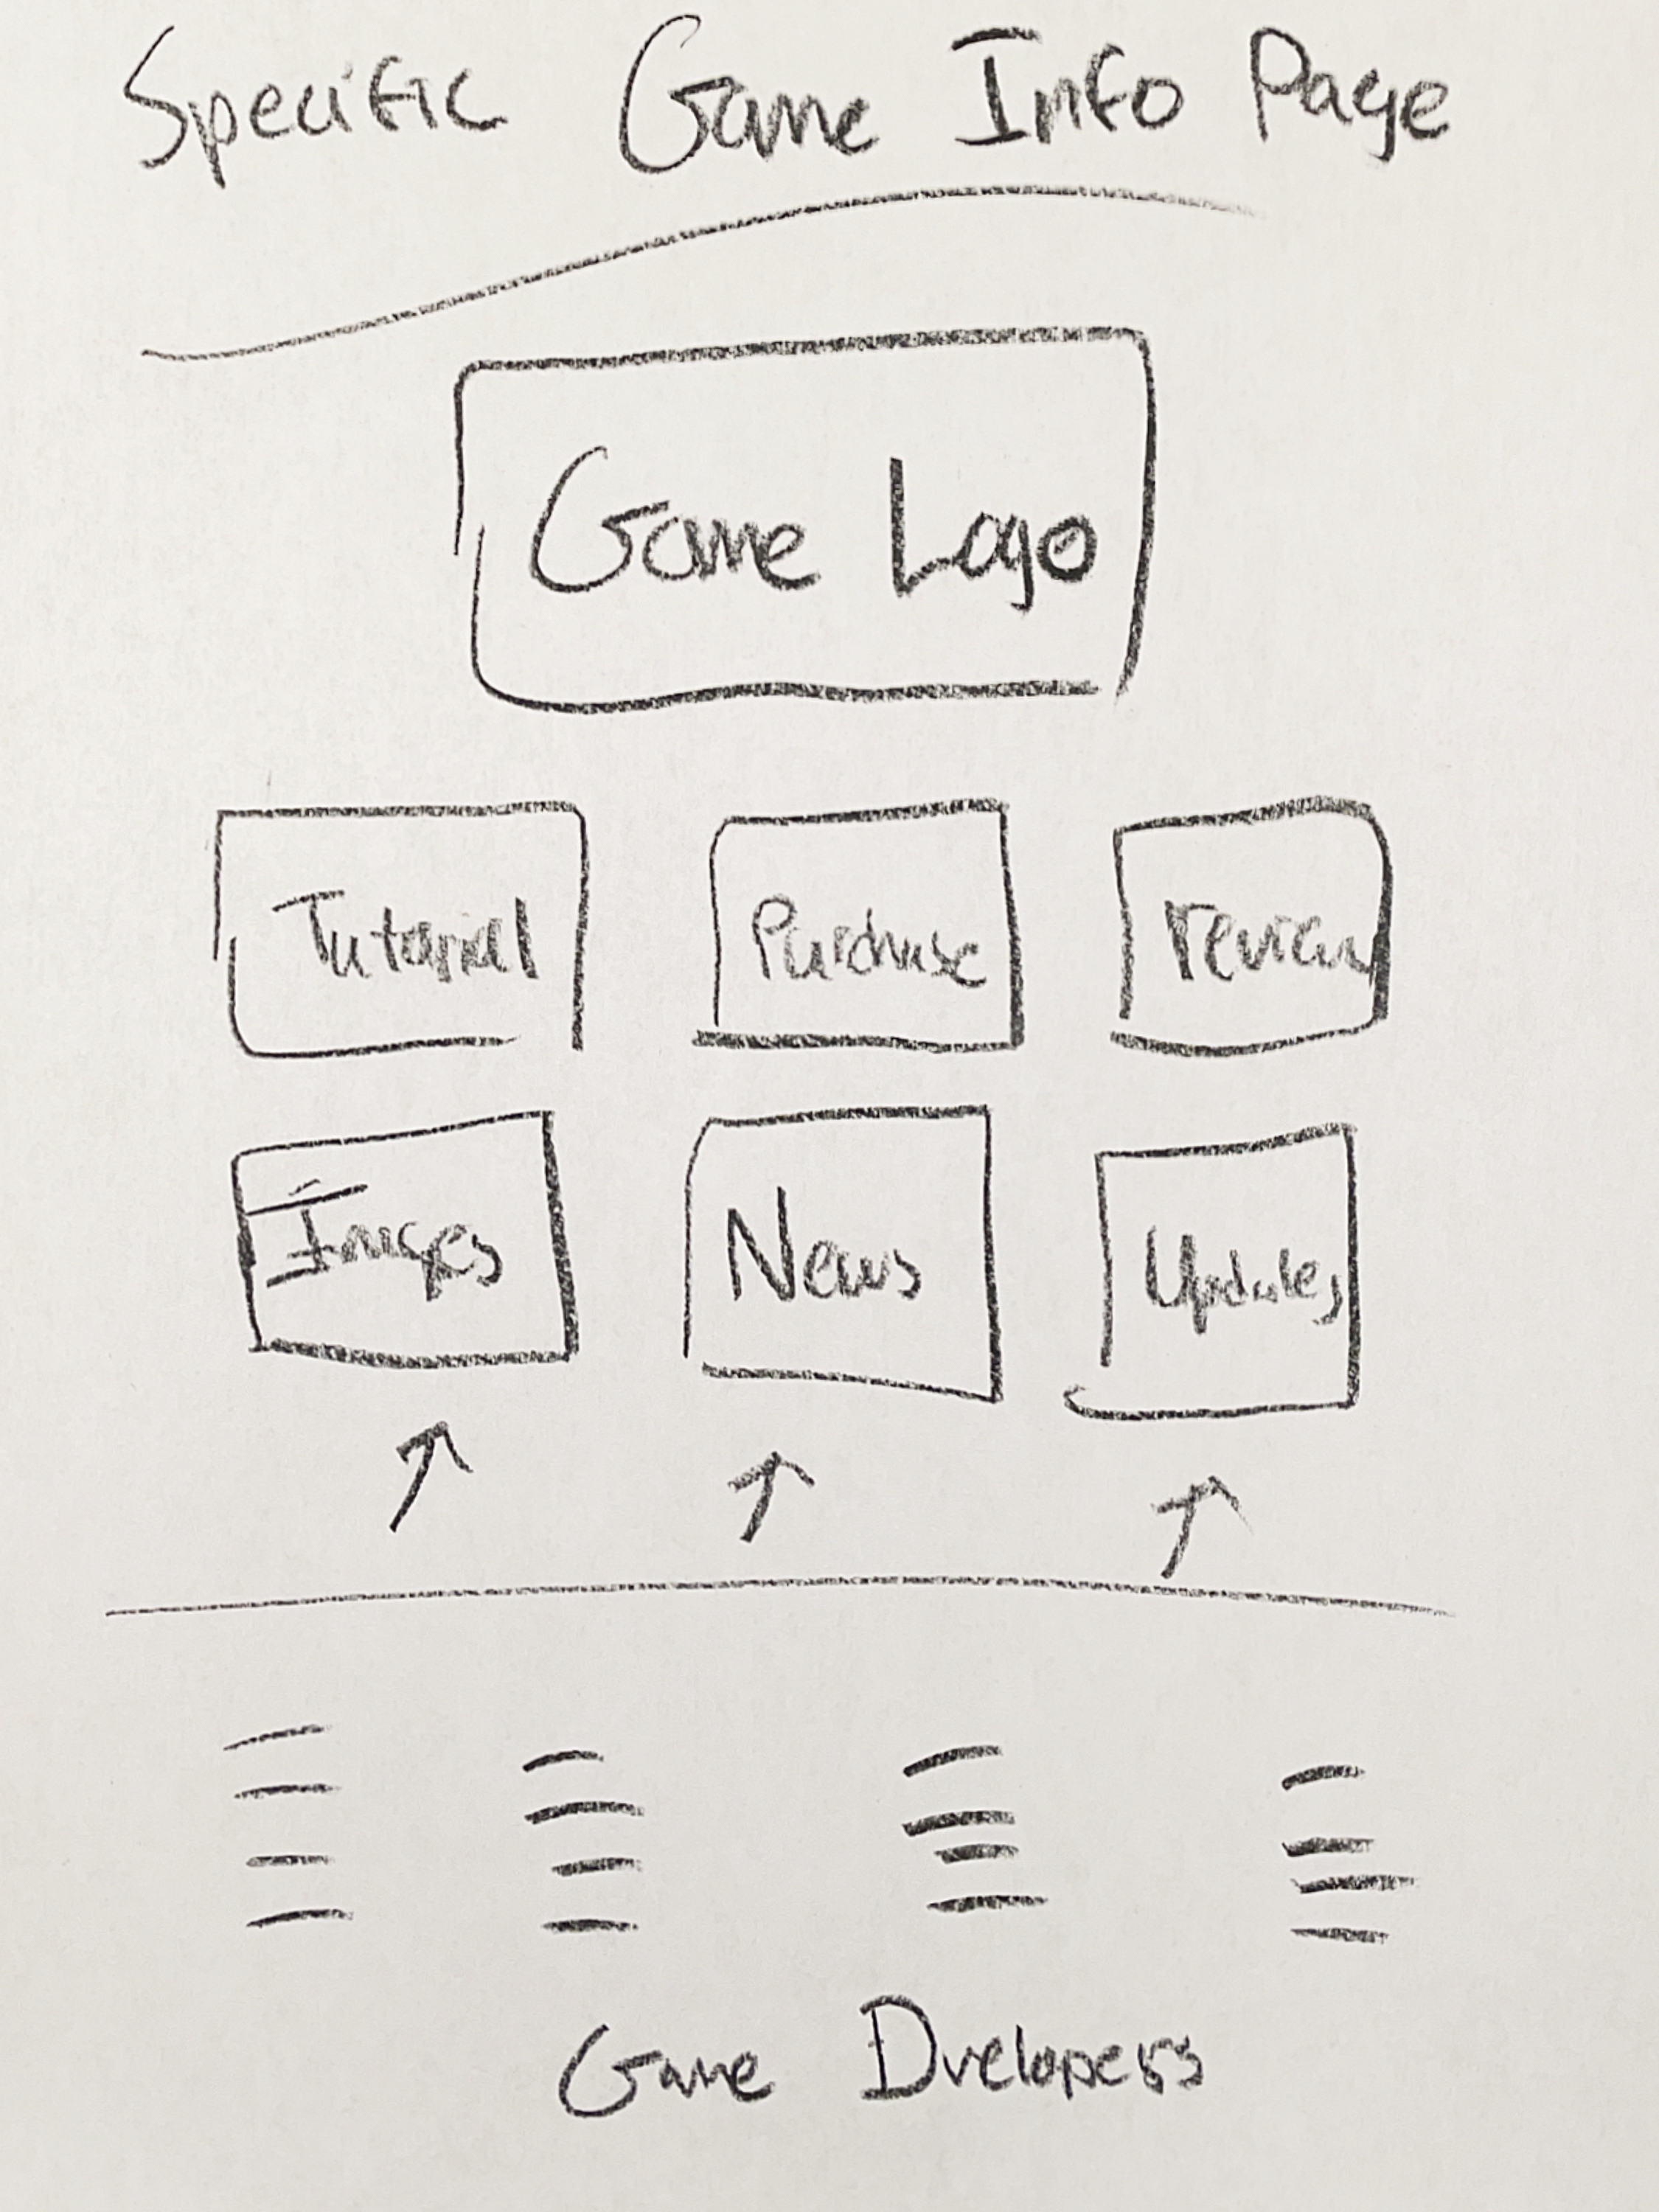 Specific Game Info Page
Game Logo
Tutorial Purchase review
Images News Updates
Game Dvelopers